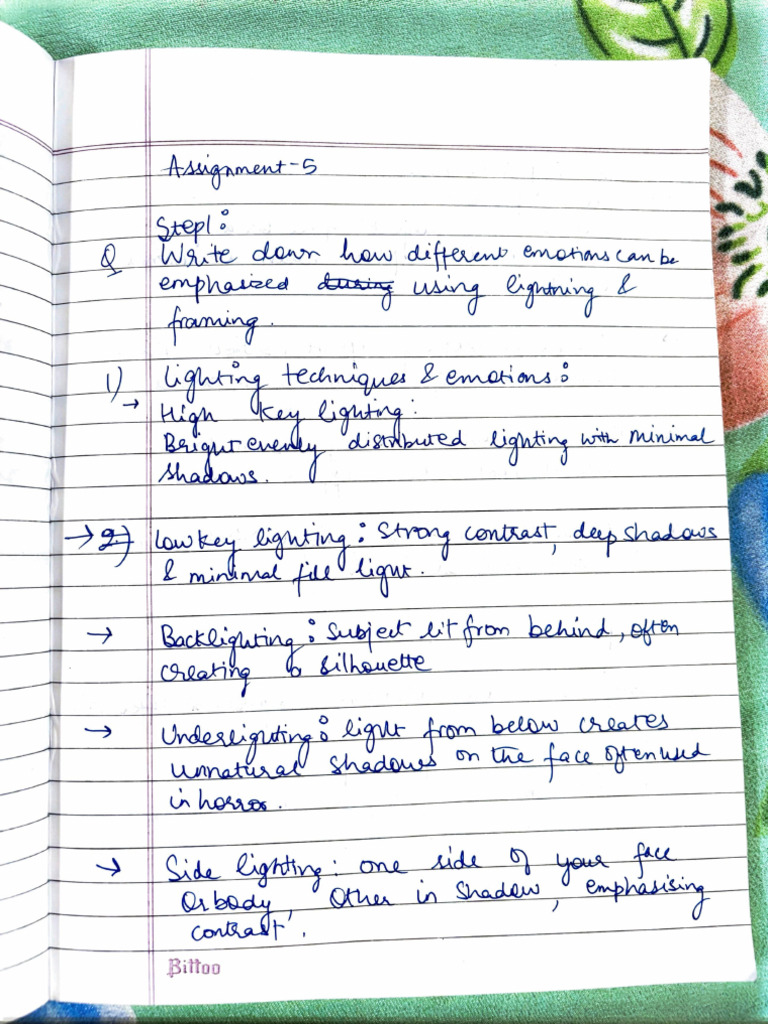 Assignment-5
Step1:
Q Write down how different emotions can be
emphasized during using lightning &
framing.
1) Lighting techniques & emotions:
→ High key lighting:
Bright evenly distributed lighting with minimal
shadows.
→ 2) Low key lighting: Strong contrast, deep shadows
& minimal fill light.
→ Backlighting: Subject lit from behind, often
creating a silhouette
→ Underlighting: light from below creates
unnatural shadows on the face often used
in horror.
→ Side lighting: one side of your face
or body, other in shadow, emphasising
contrast.
Bittoo